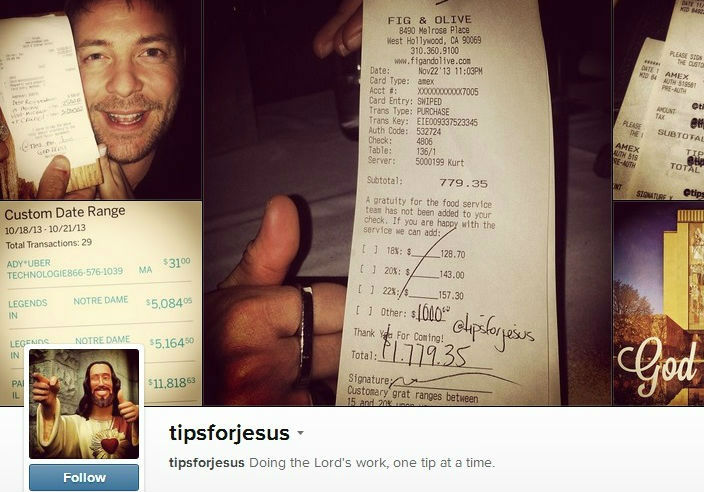 FIG & OLIVE
8490 Melrose Place
West Hollywood, CA 90069
310.360.9100
www.figandolive.com
Date: Nov22'13 11:03PM
Card Type: amex
Acct #: XXXXXXXXXXX7005
Card Entry: SWIPED
Trans Type: PURCHASE
Trans Key: EIE009337523345
Auth Code: 532724
Check: 4806
Table: 136/1
Server: 5000199 Kurt
Subtotal: 779.35
A gratuity for the food service
team has not been added to your
check. If you are happy with the
service we can add:
[ ] 18%: $ 128.70
[ ] 20%: $ 143.00
[ ] 22%: $ 157.30
[ ] Other: $1000.00
Thank You For Coming! @tipsforjesus
Total: $1,779.35
Signature:
Customary grat ranges between
15 and 20%
PLEASE SIGN
AMEX
PRE-AUTH
AMOUNT
TAX
SUBTOTAL
TIP
TOTAL
AMEX
PRE-AUTH
SIGNATURE
@tips
Custom Date Range
10/18/13 - 10/21/13
Total Transactions: 29
ADY*UBER
TECHNOLOGIE866-576-1039 MA $31.00
LEGENDS NOTRE DAME $5,084.05
IN
LEGENDS NOTRE DAME $5,164.50
IN
$11,818.63
IL
God
tipsforjesus
Follow
tipsforjesus Doing the Lord's work, one tip at a time.